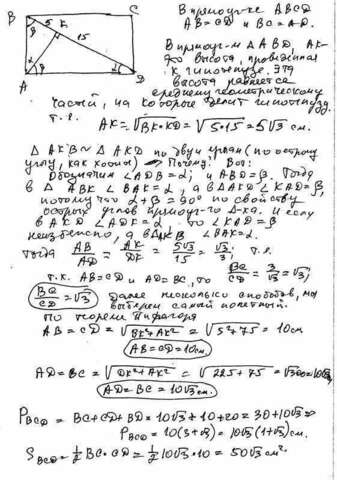 B
C
5 K
15
β
A
D
В прямоуг-ке ABCD
AB = CD и BC = AD.
В прямоуг-м △ ABD, AK-
это высота, проведённая
к гипотенузе. Эта
высота равняется
среднему геометрическому
частей, на которые делит гипотенузу
т.е.
AK = √BK·KD = √5·15 = 5√3 см.
△ AKB ~ △ AKD по двум углам (по острому
углу, как хотим) Почему? Вот:
Обозначим ∠ADB = α; и ABD = β. Тогда
в △ ABK ∠BAK = α, а в △AKD ∠KAD = β,
потому что α + β = 90° по свойству
острых углов прямоуг-го △-ка. И если
в AKD ∠ADK = α, то ∠KAD = β
неизбежно, а в △AKB ∠BAK = α.
Тогда AB/AD = AK/DK = 5√3/15 = √3/3; т.е.
т.к. AB = CD и AD = BC, то BC/CD = 3/√3 = √3;
BC/CD = √3 Далее несколько способов, мы
выберем самый понятный.
По теореме Пифагора
AB = CD = √BK²+AK² = √5²+75 = 10 см
AB = CD = 10 см.
AD = BC = √DK²+AK² = √225+75 = √300 = 10√3
AD = BC = 10√3 см.
P_BCD = BC+CD+BD = 10√3 + 10 + 20 = 30+10√3 =
P_BCD = 10(3+√3) = 10√3(1+√3) см.
S_BCD = ½ BC·CD = ½ 10√3·10 = 50√3 см²